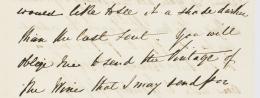 would like to see it a shade darker
than the last sent. You will
oblige me to send the Vintage of
the Wine that I may send for